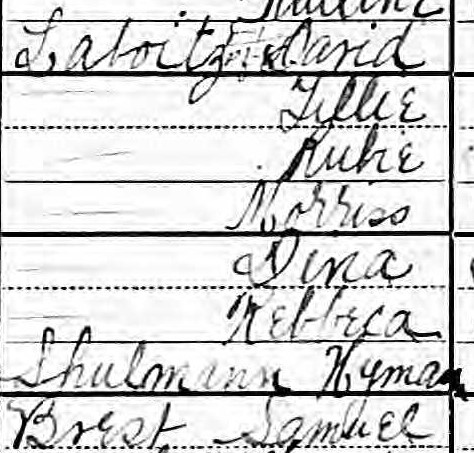 Pauline
Laboitz David
Tillie
Rubie
Morriss
Dina
Rebbeca
Shulmann Hyman
Brest Samuel